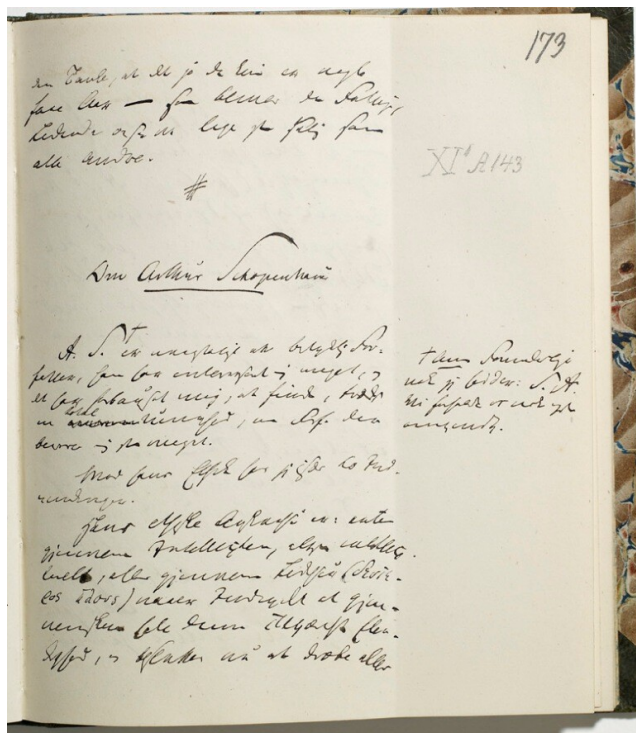 173
den Tanke, at det jo da kun er nogle
faae Aar — saa
Lidende som
alle andre.
#
XI¹ A 143
Om Arthur Schopenhauer
A. S.† er unegtelig en betydelig For-
fatter, han har interesseret mig meget, og
det har forbauset mig, at finde, trods
en total Uenighed, en Forf. der
berører mig saa meget.
Mod hans Ethik har jeg især to Ind-
vendinger.
Hans ethiske Anskuelse er: enten
gjennem Intellecten, altsaa intellec-
tuelt, eller gjennem Lidelser (δευτε-
ρος πλους) naaer Individet at gjen-
nemskue hele denne Tilværelses Elen-
dighed, og beslutter nu at dræbe eller
†
nok jeg hedder: S. A.
Vi forholde os nok ogsaa
omvendt.